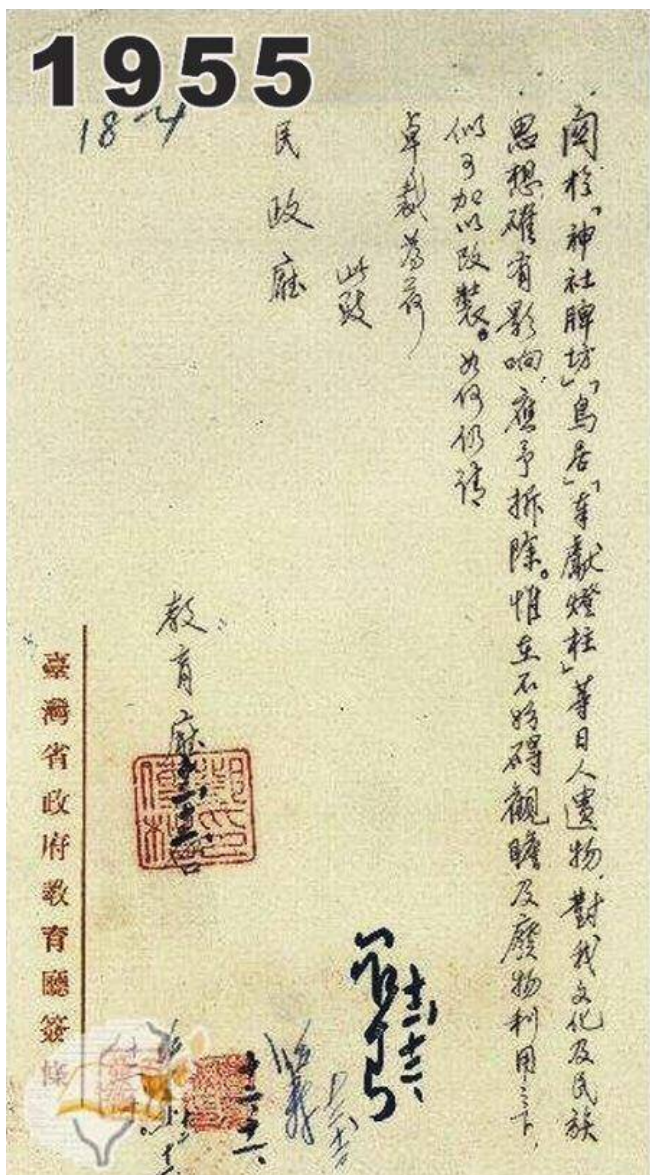 1955
18-4
關於「神社牌坊」「鳥居」「奉獻燈柱」等日人遺物,對我文化及民族
思想確有影响,應予拆除。惟在不妨碍觀瞻及廢物利用之下,
似可加以改裝。如何仍請
卓裁為荷
此致
民政廳
教育廳
臺灣省政府教育廳簽條